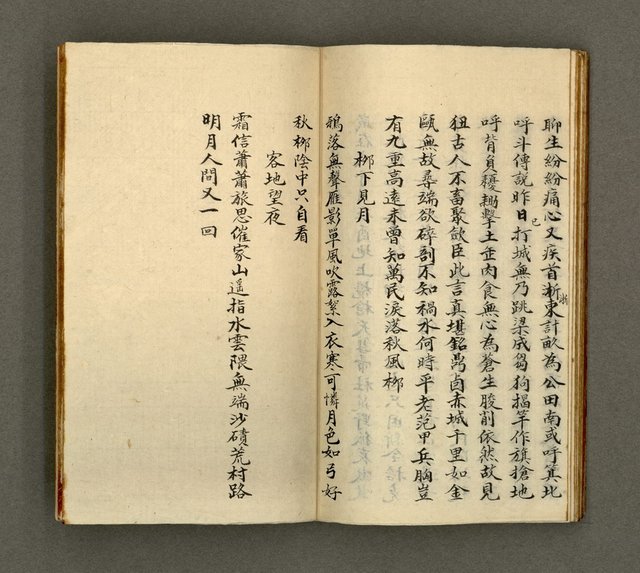 聊生紛紛痛心又疾首浙東計畝為公田南或呼箕北
呼斗傳說昨日已打城無乃跳梁成芻狗揭竿作旗搶地
呼背負耰鋤擊土缶肉食無心為蒼生朘削依然故見
狃古人不畜聚歛臣此言真堪銘禹卣赤城千里如金
甌無故尋端欲碎剖不知禍水何時平老范甲兵胸豈
有九重高遠未曾知萬民淚落秋風柳
柳下見月
鴉落無聲雁影單風吹露絮入衣寒可憐月色如弓好
秋柳陰中只自看
客地望夜
霜信蕭蕭旅思催家山遥指水雲隈無端沙磧荒村路
明月人間又一回